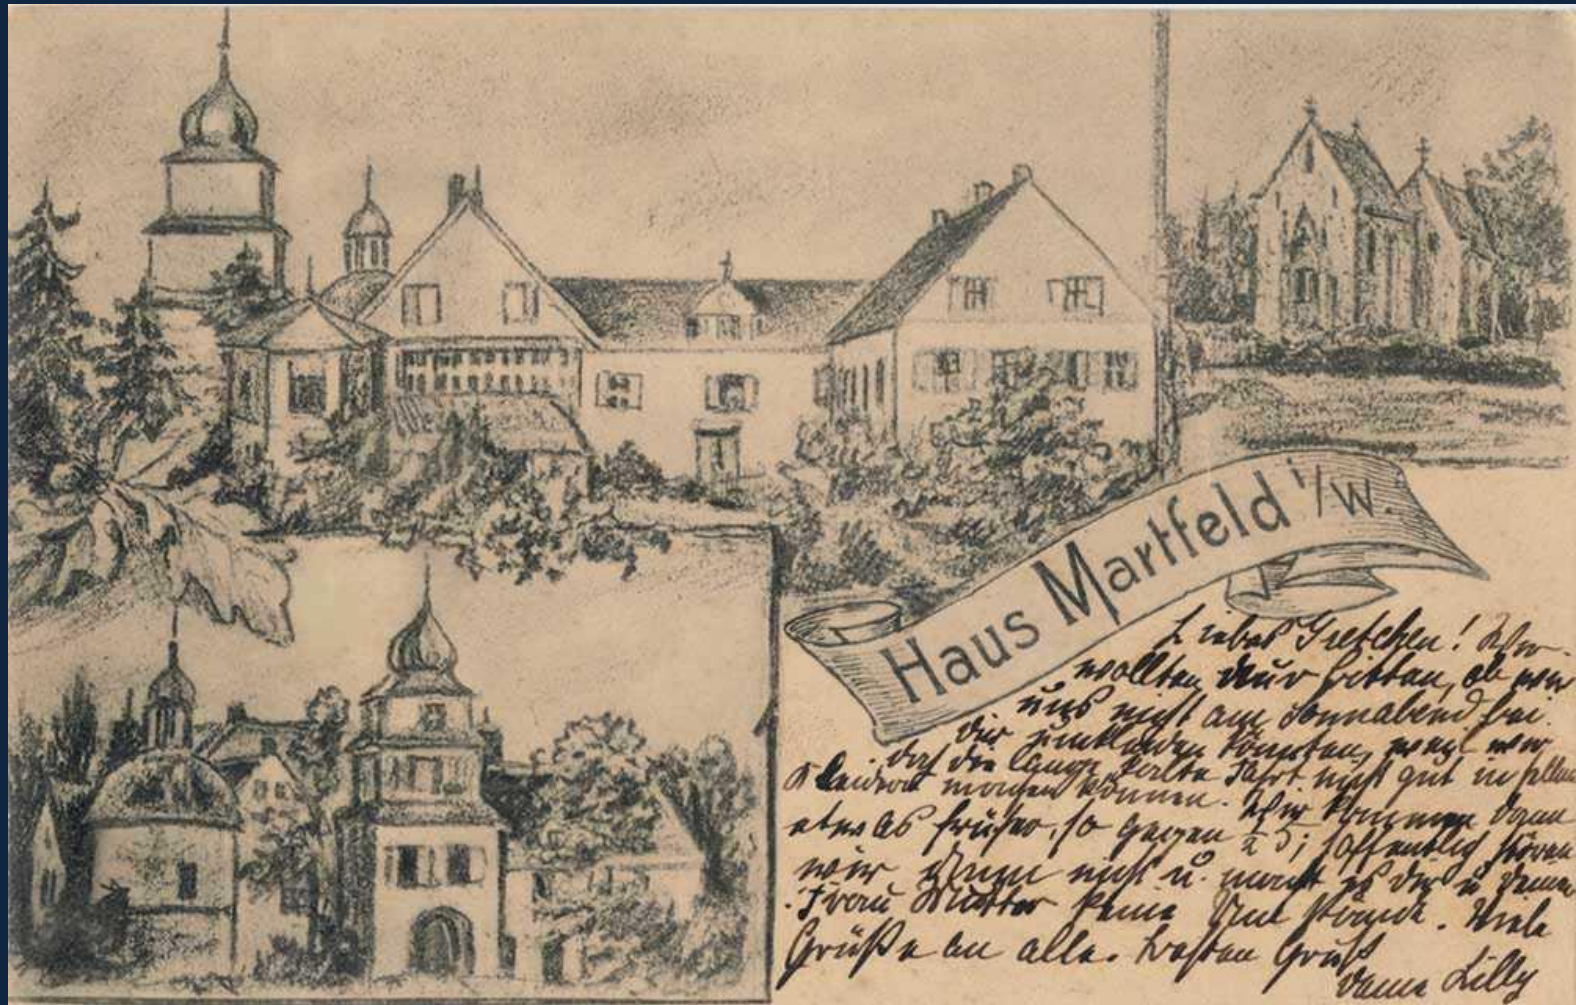 Haus Martfeld i/W.
Liebes Gretchen! Wir
wollten Dich bitten, ob wir
uns nicht am Sonnabend bei
Dir umkleiden könnten, weil wir
doch die lange kalte Fahrt nicht gut in hellen
Kleidern machen können. Wir kommen dann
etwas früher, so gegen ½ 5; hoffentlich stören
wir Dann nicht u. macht es Dir u Deiner
Frau Mutter keine Umstände. Viele
Grüße an alle. Besten Gruß
Deine Lilly